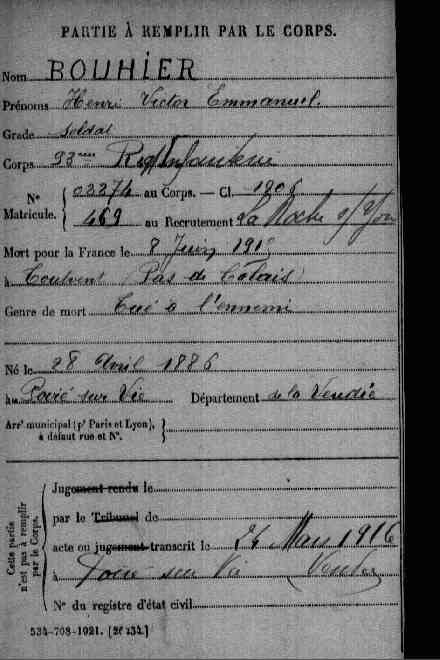 PARTIE À REMPLIR PAR LE CORPS.
Nom BOUHIER
Prénoms Henri Victor Emmanuel.
Grade soldat
Corps 93ème Regt Infanterie
N° Matricule. { 03274 au Corps. — Cl. 1906
469 au Recrutement La Roche s/ Yon
Mort pour la France le 8 Juin 191
à Toutvent (Pas de Calais)
Genre de mort Tué à l'ennemi
Né le 28 Avril 1886
au Poiré sur Vie Département de la Vendée
Arrt municipal (pr Paris et Lyon), à défaut rue et N°. }
Cette partie n'est pas à remplir par le Corps.
Jugement rendu le
par le Tribunal de
acte ou jugement transcrit le 24 Mars 1916
à Poiré sur Vie (Vendée
N° du registre d'état civil
534-708-1921. [26434.]